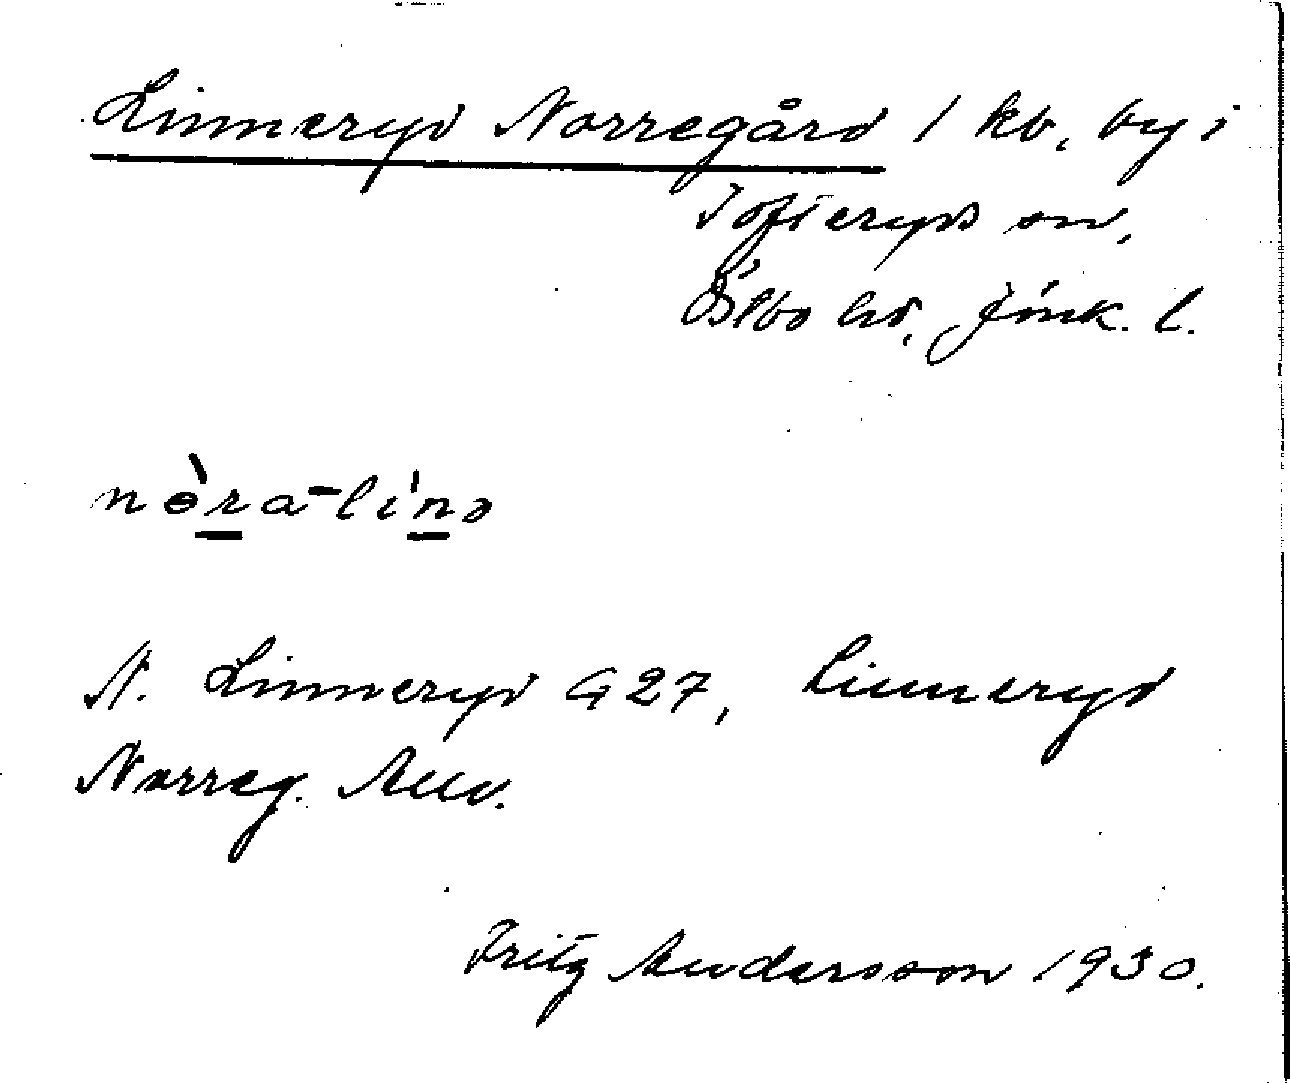 Linneryd Norregård 1 kb. by i
Tofteryds sn,
Östbo hd, Jönk. l.
nò̵ra-linə
N. Linneryd G 27, Linneryd
Norreg. Allm.
Fritz Andersson 1930.